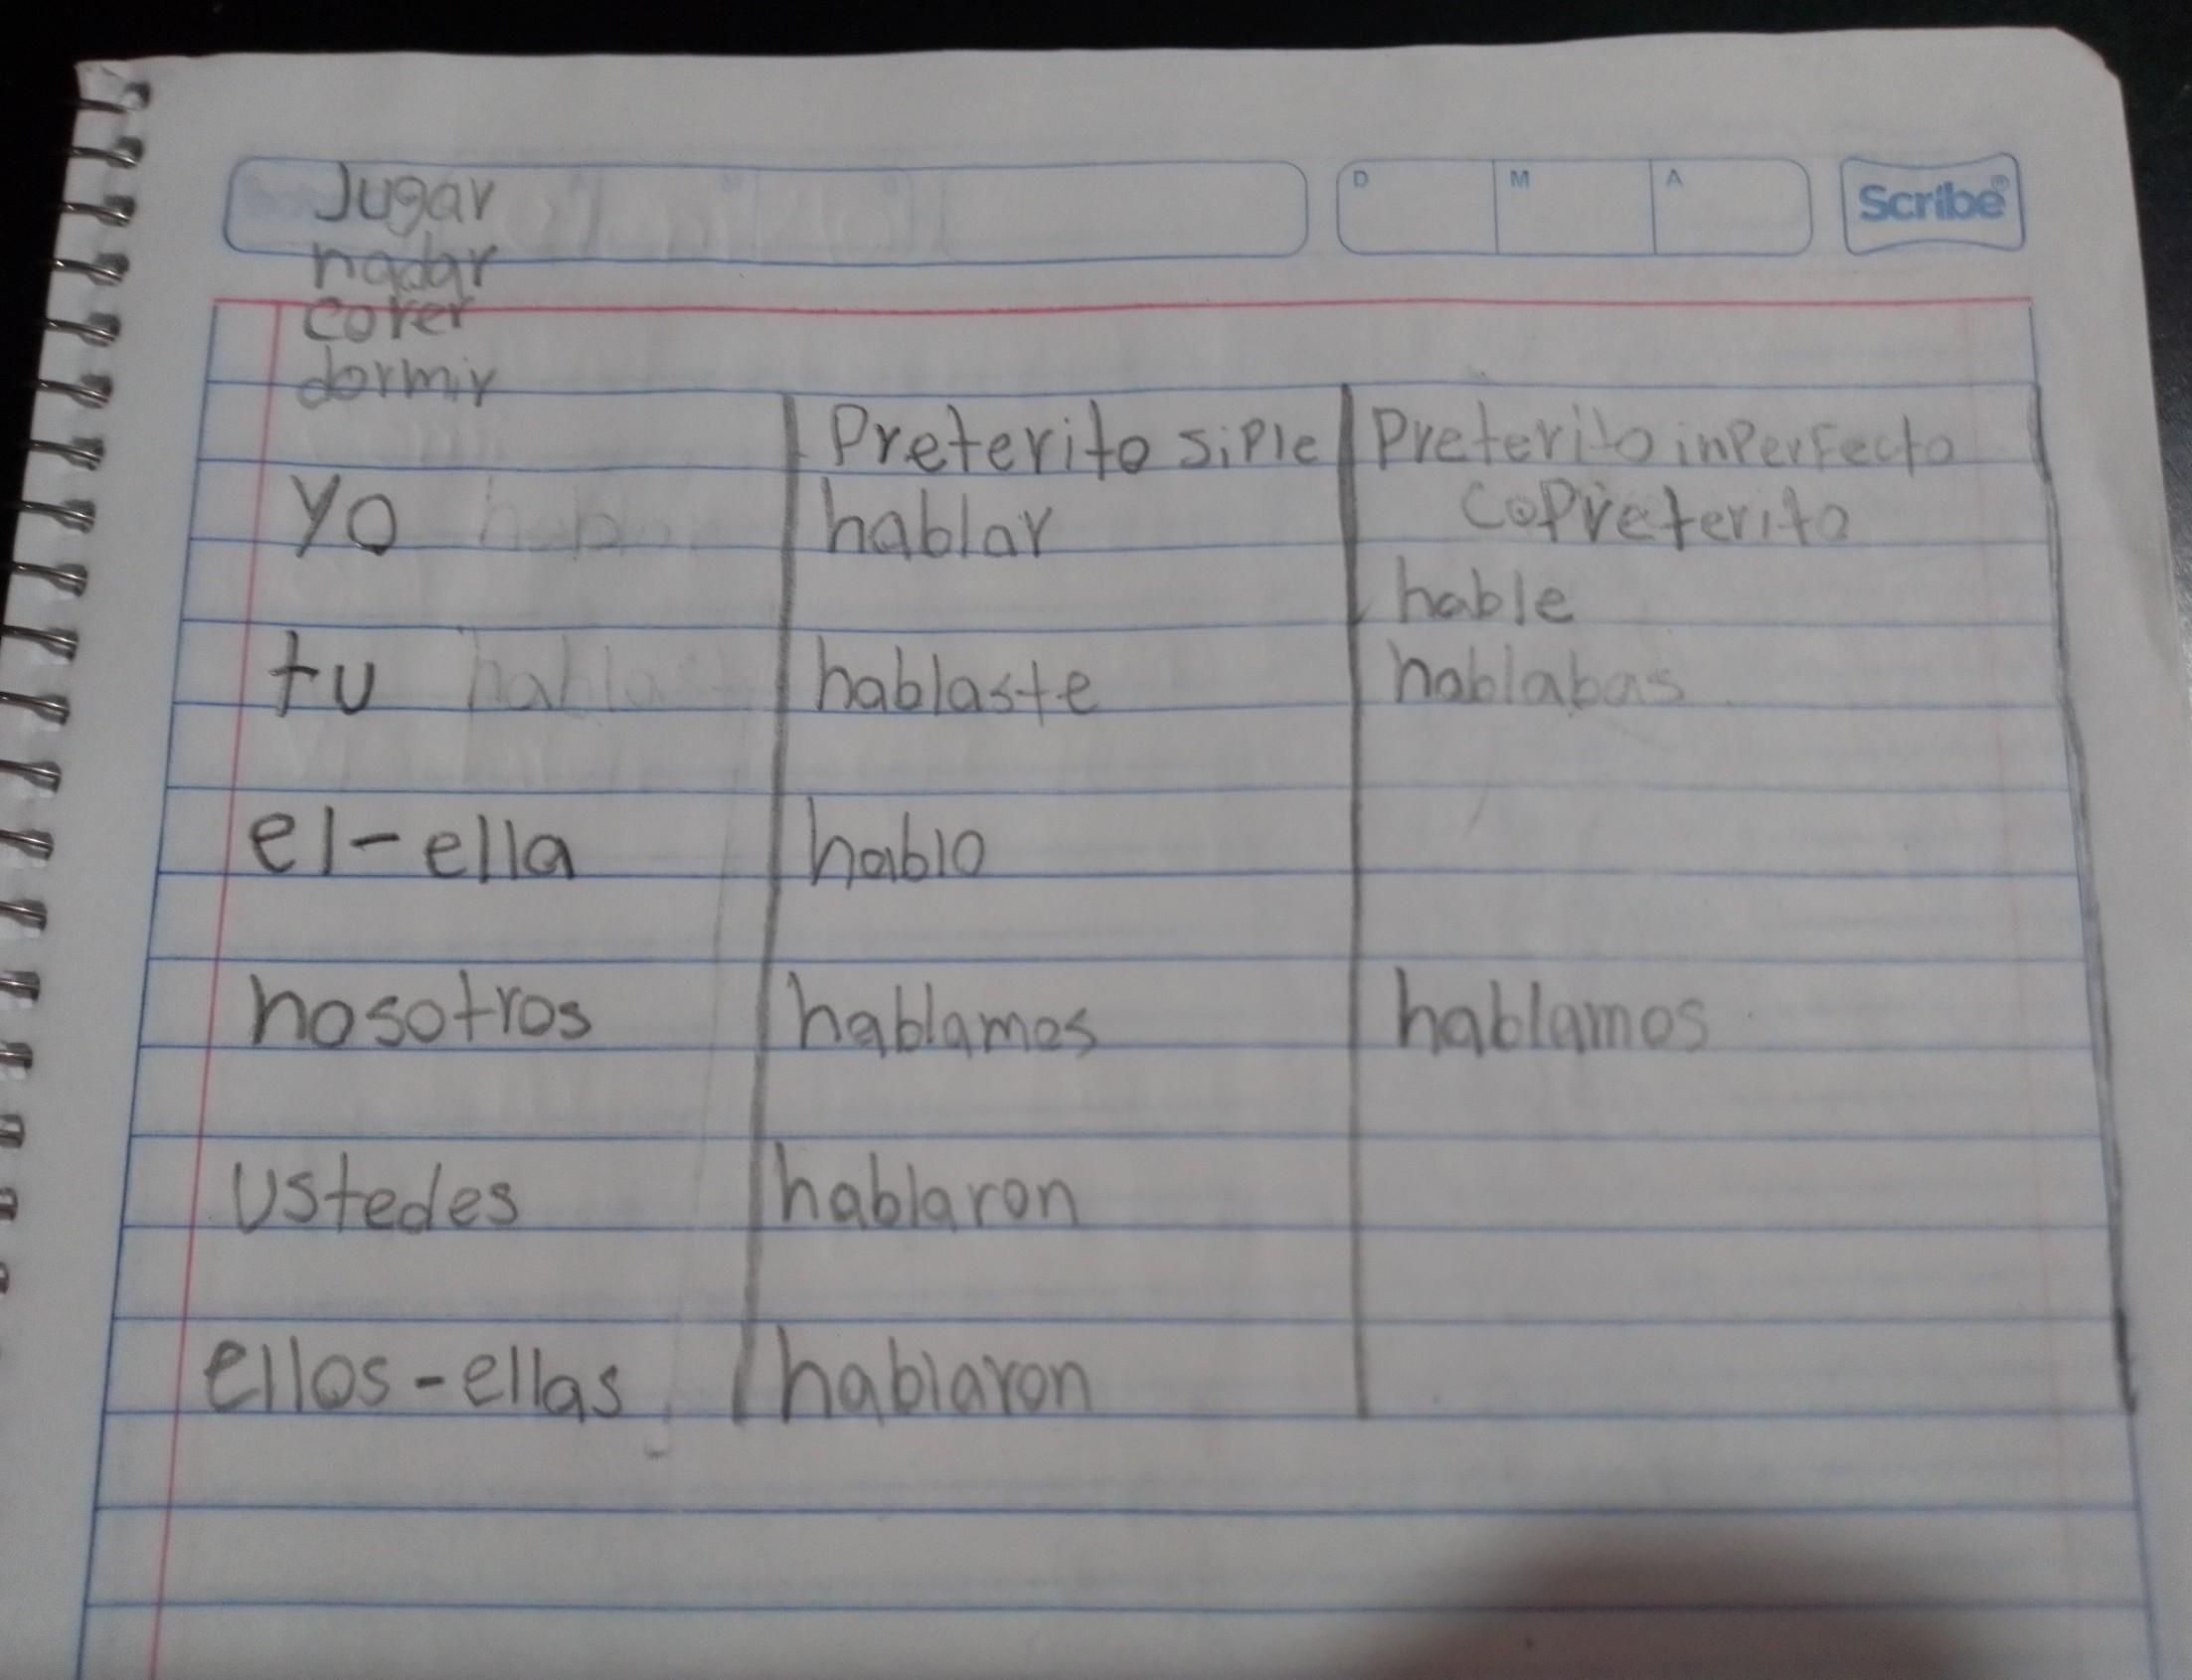 Jugar
D M A Scribe®
nadar
correr
dormir
Preterito siple Preterito inPerFecto
yo hablar CoPreterito
hable
tu hablaste hablabas
el-ella hablo
nosotros hablamos hablamos
ustedes hablaron
ellos-ellas hablaron